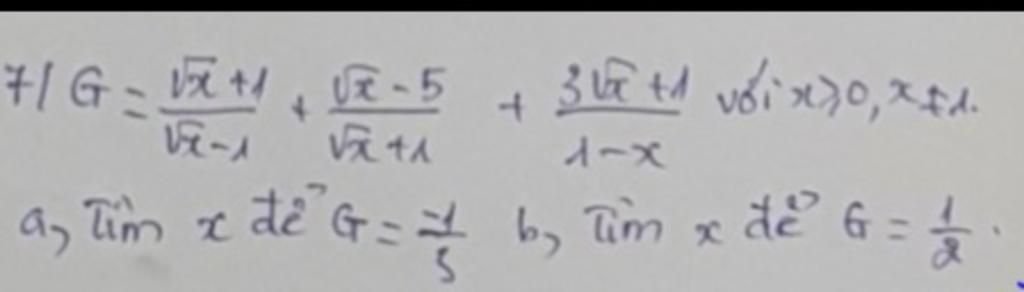 7/ G = \frac{\sqrt{x}+1}{\sqrt{x}-1} + \frac{\sqrt{x}-5}{\sqrt{x}+1} + \frac{3\sqrt{x}+1}{1-x} với x ≥ 0, x ≠ 1.
a, Tìm x để G = \frac{-1}{5} b, Tìm x để G = \frac{1}{2}.